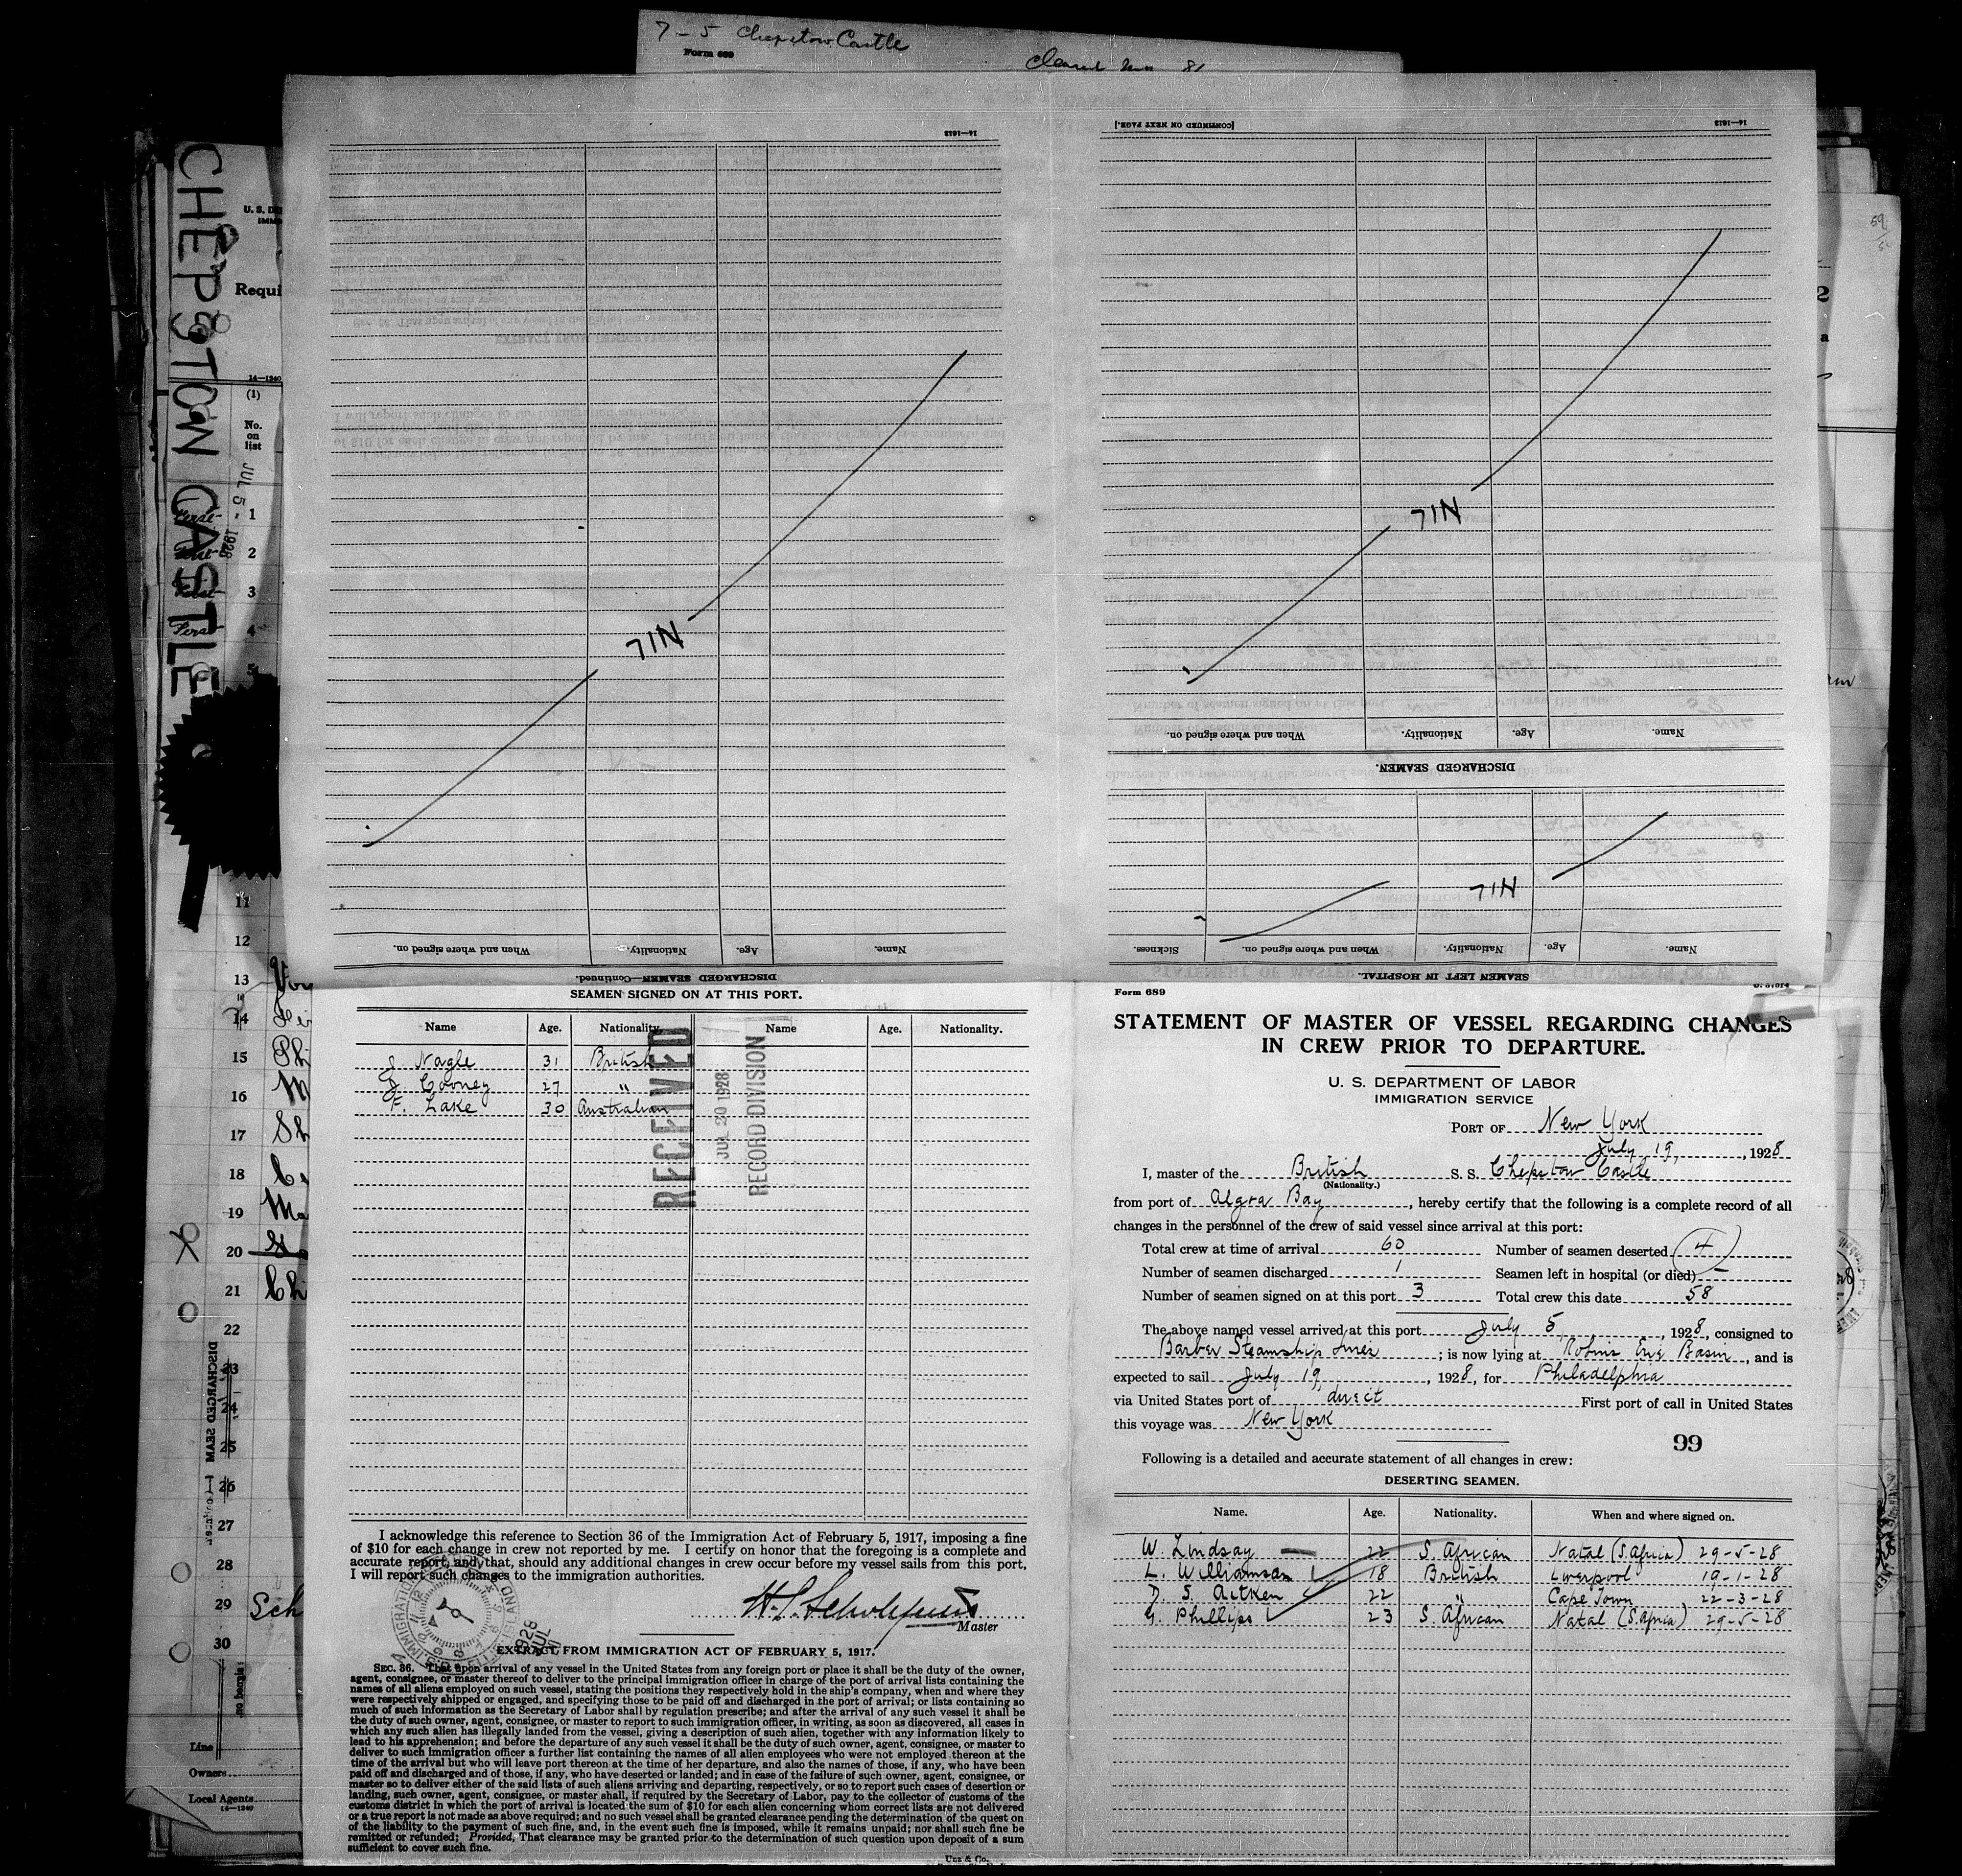 7-5 Chepstow Castle
Form 689
CHEPSTOW CASTLE
Requi
14—1240
(1)
No.
on
list
JUL 5 - 1928
1
2
3
4
5
11
12
13
14
15
16
17
18
19
20
21
22
23
24
25
26
27
28
29
30
Line
Owners
Local Agents
14—1240
14—1613
NIL
Name.
Age.
Nationality.
When and where signed on.
DISCHARGED SEAMEN—Continued.
[CONTINUED ON NEXT PAGE.]
14—1613
NIL
Name.
Age.
Nationality.
When and where signed on.
DISCHARGED SEAMEN.
NIL
Name.
Age.
Nationality.
When and where signed on.
Sickness.
SEAMEN LEFT IN HOSPITAL.
SEAMEN SIGNED ON AT THIS PORT.
Name Age. Nationality. Name Age. Nationality.
J. Nagle 31 British
J. Cooney 27 "
F. Lake 30 Australian
RECEIVED
JUL 20 1928
RECORD DIVISION
I acknowledge this reference to Section 36 of the Immigration Act of February 5, 1917, imposing a fine
of $10 for each change in crew not reported by me. I certify on honor that the foregoing is a complete and
accurate report, and, that, should any additional changes in crew occur before my vessel sails from this port,
I will report such changes to the immigration authorities.
Master
EXTRACT FROM IMMIGRATION ACT OF FEBRUARY 5, 1917.
SEC. 36. That upon arrival of any vessel in the United States from any foreign port or place it shall be the duty of the owner,
agent, consignee, or master thereof to deliver to the principal immigration officer in charge of the port of arrival lists containing the
names of all aliens employed on such vessel, stating the positions they respectively hold in the ship's company, when and where they
were respectively shipped or engaged, and specifying those to be paid off and discharged in the port of arrival; or lists containing so
much of such information as the Secretary of Labor shall by regulation prescribe; and after the arrival of any such vessel it shall be
the duty of such owner, agent, consignee, or master to report to such immigration officer, in writing, as soon as discovered, all cases in
which any such alien has illegally landed from the vessel, giving a description of such alien, together with any information likely to
lead to his apprehension; and before the departure of any such vessel it shall be the duty of such owner, agent, consignee, or master to
deliver to such immigration officer a further list containing the names of all alien employees who were not employed thereon at the
time of the arrival but who will leave port thereon at the time of her departure, and also the names of those, if any, who have been
paid off and discharged and of those, if any, who have deserted or landed; and in case of the failure of such owner, agent, consignee, or
master so to deliver either of the said lists of such aliens arriving and departing, respectively, or so to report such cases of desertion or
landing, such owner, agent, consignee, or master shall, if required by the Secretary of Labor, pay to the collector of customs of the
customs district in which the port of arrival is located the sum of $10 for each alien concerning whom correct lists are not delivered
or a true report is not made as above required; and no such vessel shall be granted clearance pending the determination of the quest on
of the liability to the payment of such fine, and, in the event such fine is imposed, while it remains unpaid; nor shall such fine be
remitted or refunded; Provided, That clearance may be granted prior to the determination of such question upon deposit of a sum
sufficient to cover such fine.
Form 689
STATEMENT OF MASTER OF VESSEL REGARDING CHANGES
IN CREW PRIOR TO DEPARTURE.
U. S. DEPARTMENT OF LABOR
IMMIGRATION SERVICE
PORT OF New York
July 19, 1928
I, master of the British S. S. Chepstow Castle
(Nationality.)
from port of Algoa Bay, hereby certify that the following is a complete record of all
changes in the personnel of the crew of said vessel since arrival at this port:
Total crew at time of arrival 60 Number of seamen deserted 4
Number of seamen discharged 1 Seamen left in hospital (or died) —
Number of seamen signed on at this port 3 Total crew this date 58
The above named vessel arrived at this port July 5, 1928, consigned to
Barber Steamship Lines; is now lying at Robins Erie Basin, and is
expected to sail July 19, 1928, for Philadelphia
via United States port of direct First port of call in United States
this voyage was New York
99
Following is a detailed and accurate statement of all changes in crew:
DESERTING SEAMEN.
Name. Age. Nationality. When and where signed on.
W. Lindsay 22 S. African Natal (S. Africa) 29-5-28
L. Williamson 18 British Liverpool 19-1-28
D. S. Aitken 22 " Cape Town 22-3-28
G. Phillips 23 S. African Natal (S. Africa) 29-5-28